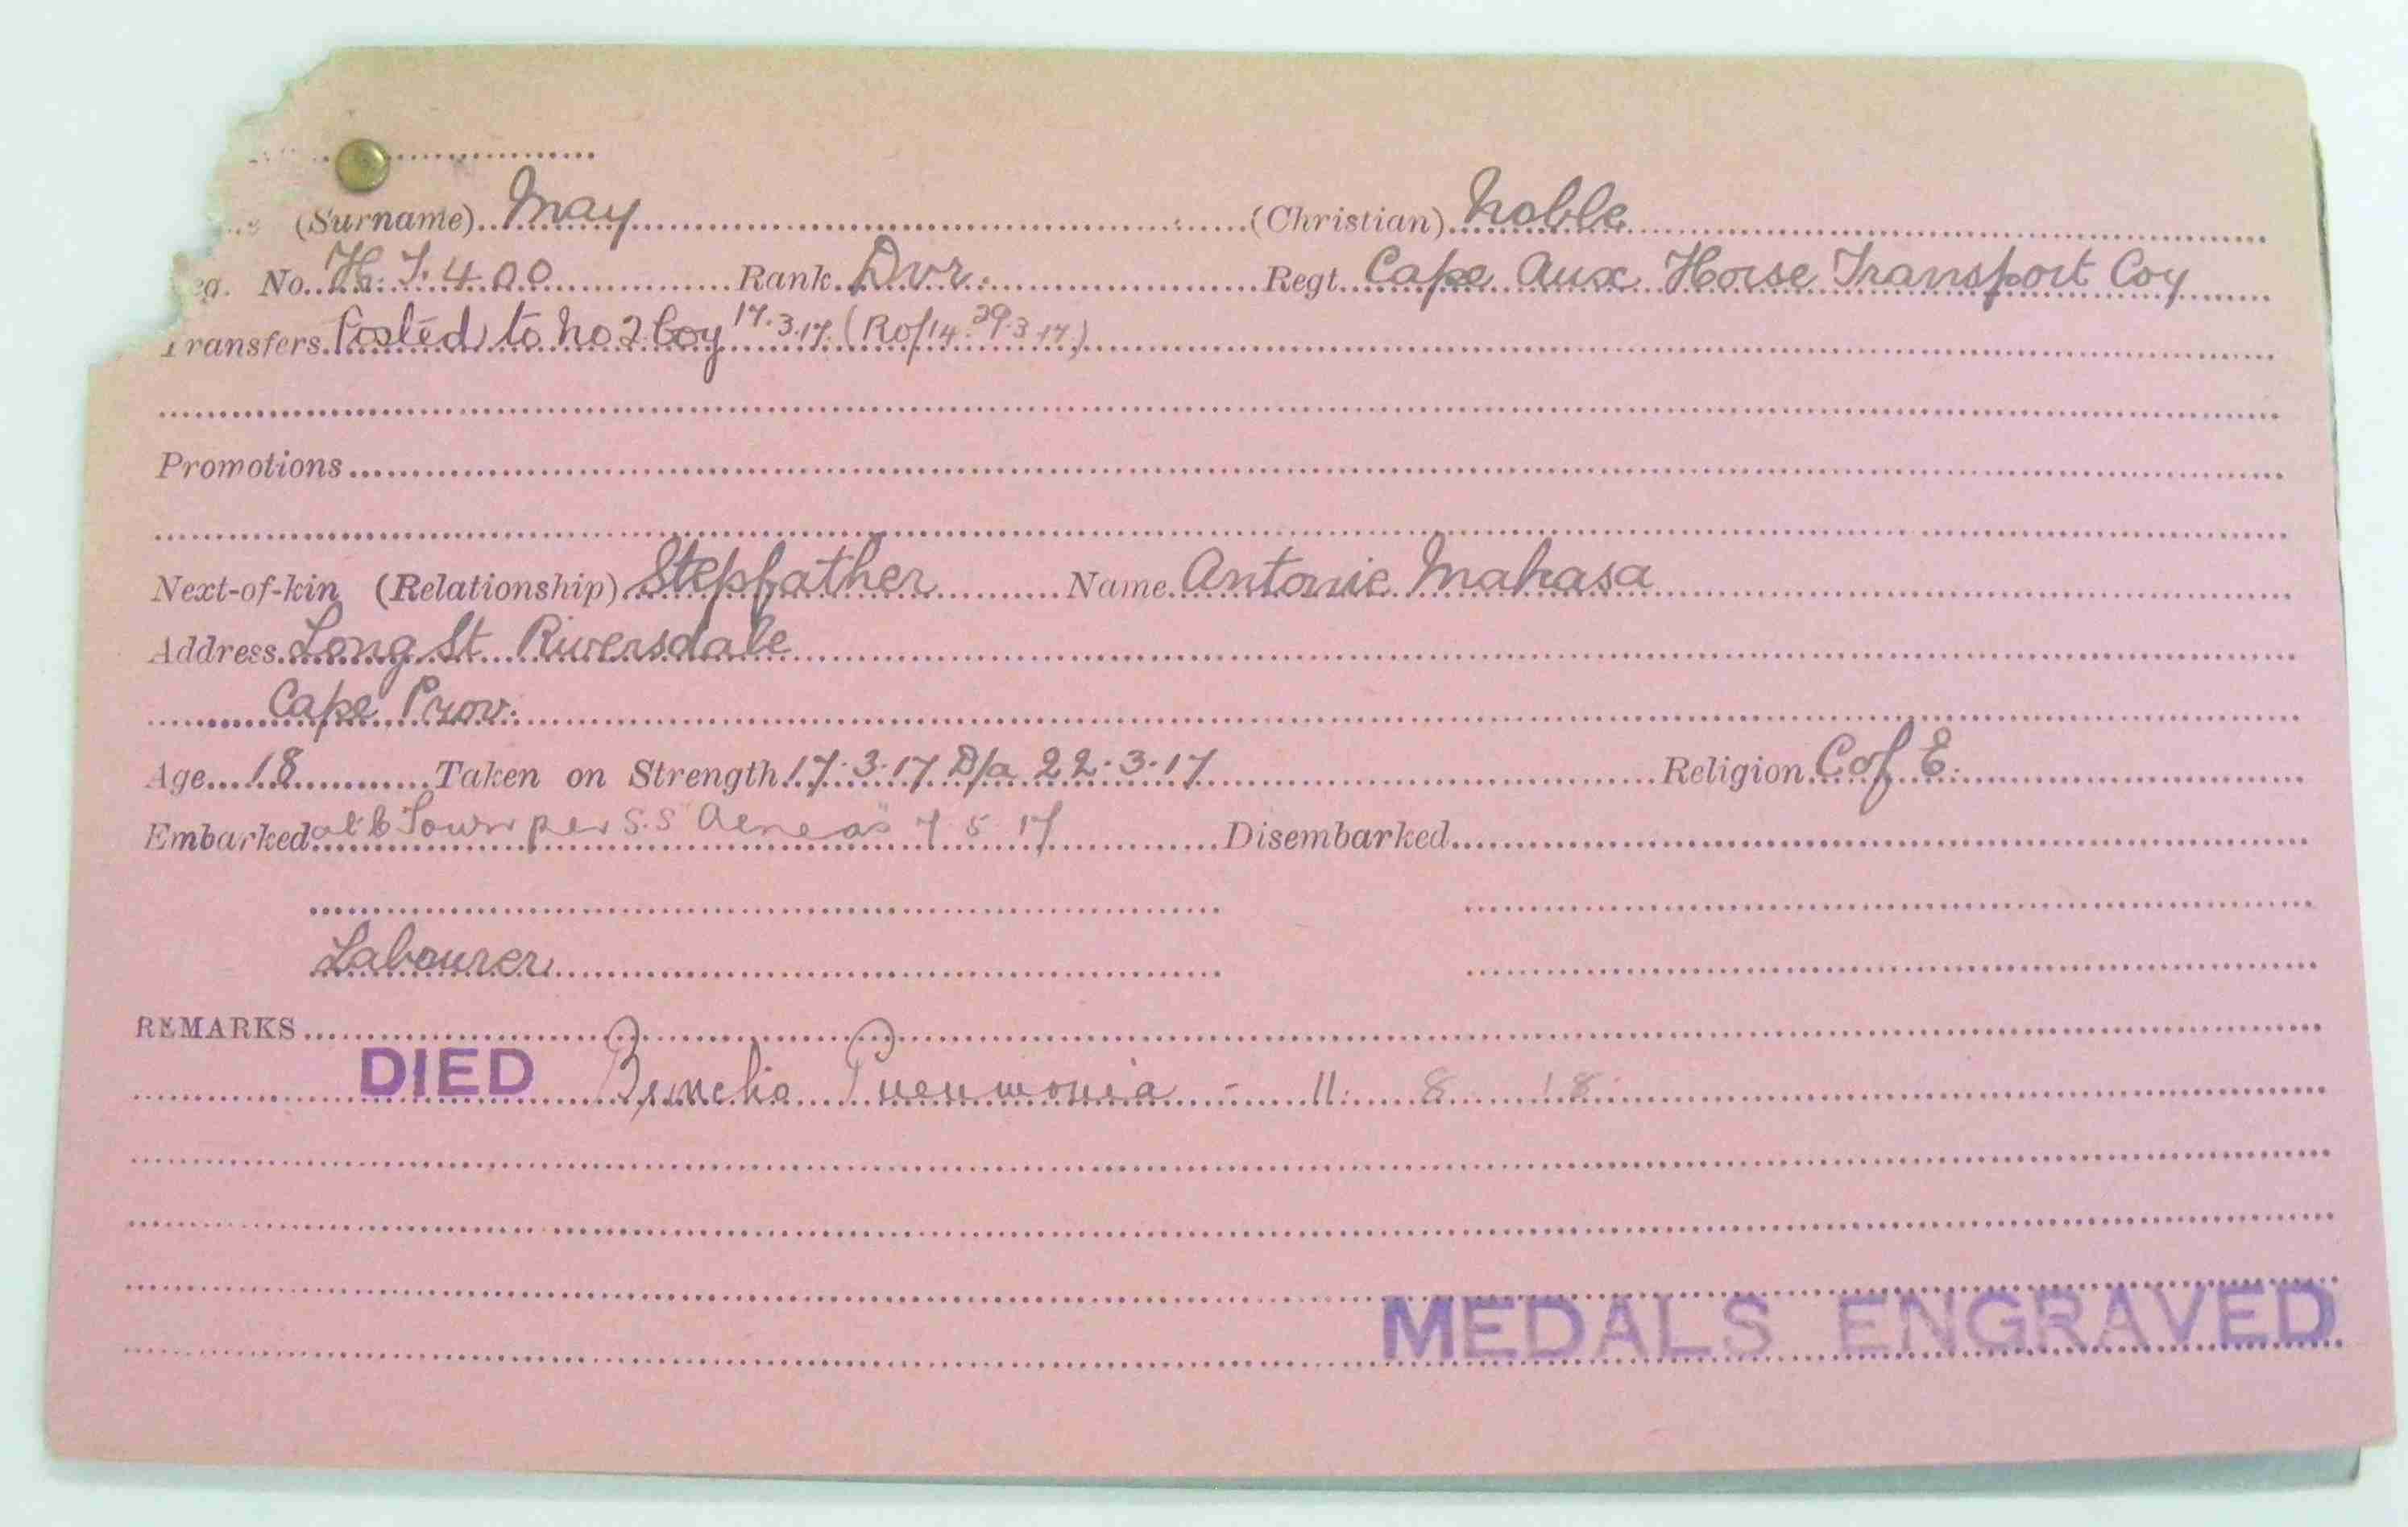 (Surname) May (Christian) Noble
eg. No. H.T. 400 Rank Dvr. Regt. Cape Aux Horse Transport Coy
Transfers Posted to No 2 Coy 17.3.17. (Ro/14. 29.3.17.)
Promotions
Next-of-kin (Relationship) Stepfather Name Antonie Mahasa
Address Long St Riversdale
Cape Prov.
Age 18 Taken on Strength 17.3.17 D/a 22.3.17 Religion C of E.
Embarked at C Town per S.S "Aeneas" 7 5 17 Disembarked
Labourer
REMARKS
DIED Broncho Pneumonia - 11. 8 18
MEDALS ENGRAVED